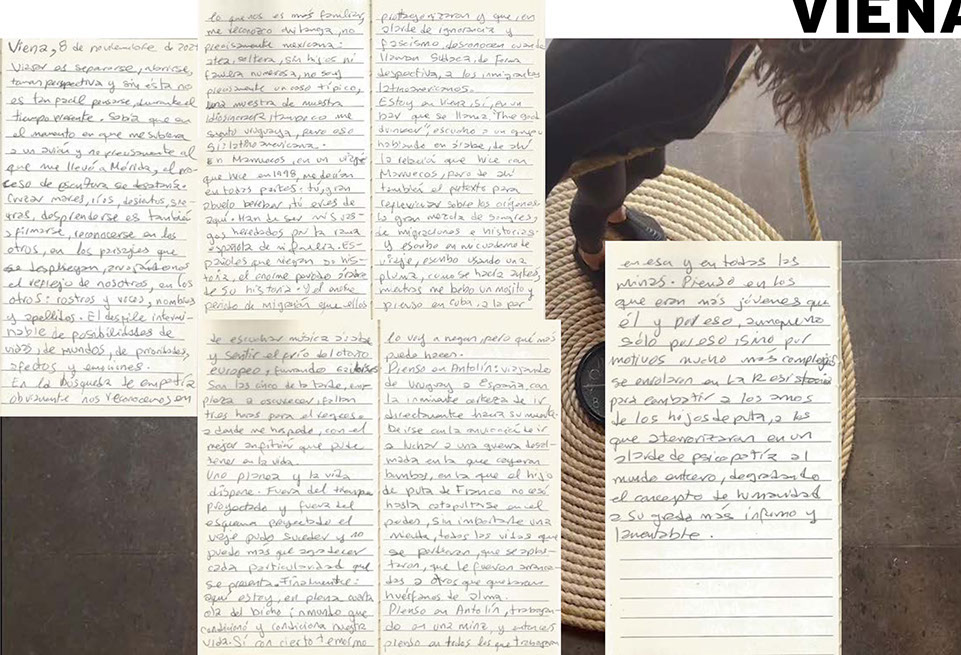 VIENA
Viena, 8 de noviembre de 2021
Viajar es separarse, abrirse,
tomar perspectiva y sin ésta no
es tan fácil pensarse, durante el
tiempo presente. Sabía que en
el momento en que me subiera
a un avión y no precisamente al
que me llevó a Mérida, el pro-
ceso de escritura se desataría.
Cruzar mares, ríos, desiertos,
desprenderse es también
afirmarse, reconocerse en los
otros, en los paisajes que
se despliegan, arrojándonos
el reflejo de nosotros, en los
otros: rostros y voces, nombres
y apellidos. El desfile intermi-
nable de posibilidades de
vidas, de mundos, de prioridades,
afectos y emociones.
En la búsqueda de empatía
obviamente nos reconocemos en
lo que nos es más familiar,
me reconozco milanga, no
precisamente mexicana:
atea, soltera, sin hijos ni
familia numerosa, no soy
precisamente un caso típico,
una muestra de nuestra
idiosincrasia tampoco me
siento uruguaya, pero eso
sí: latinoamericana.
En Marruecos, en un viaje
que hice en 1998, me decían
en todas partes: tú, gran
abuelo berebar, tú eres de
aquí. Han de ser mis ras-
gos heredados por la raza
española de mi familia. Es-
pañoles que niegan su his-
toria, el enorme período árabe
de su historia. Y el
período de migración que ellos
protagonizaran y que en
alarde de ignorancia y
fascismo desconocen cuando
llaman Sudaca, de forma
despectiva, a los inmigrantes
latinoamericanos.
Estoy en Viena, sí, en un
bar que se llama "The
", escucho a un grupo
hablando en árabe, de ahí
la relación que hice con
Marruecos, pero de ahí
también el pretexto para
reflexionar sobre los orígenes
la gran mezcla de sangres,
de migraciones e historias
y escribo en mi cuaderno de
viaje, escribo usando una
pluma, como se hacía antes,
mientras me bebo un mojito y
pienso en Cuba, a la par
de escuchar música árabe
y sentir el frío del otoño
europeo, fumando
Son las cinco de la tarde, em-
pieza a oscurecer, faltan
tres horas para el regreso
a donde me hospedo, con el
mejor anfitrión que pude
tener en la vida.
Uno planea y la vida
dispone. Fuera del tiempo
proyectado y fuera del
esquema proyectado el
viaje pudo suceder y no
puedo más que agradecer
cada particularidad que
se presenta. Finalmente:
aquí estoy, en plena cuarta
ola del bicho inmundo que
condicionó y condiciona nuestra
vida. Sí con cierto temor, no
lo voy a negar, pero qué más
puedo hacer.
Pienso en Antolín: viajando
de Uruguay a España, con
la inminente certeza de ir
directamente hacia su muerte.
De irse con la convicción de ir
a luchar a una guerra desal-
mada en la que cayeron
tantos, en la que el hijo
de puta de Franco no cesó
hasta catapultarse en el
poder, sin importarle una
mierda, todas las vidas que
se perdieran, que se aplas-
taran, que le fueron arranca-
das a otros que quedaron
huérfanos de alma.
Pienso en Antolín, trabajan-
do en una mina, y entonces
pienso en todos los que trabajaron
en esa y en todas las
minas. Pienso en los
que eran más jóvenes que
él y por eso, aunque no
sólo por eso sino por
motivos mucho más complejos
se enrolaron en La Resistencia
para combatir a los amos
de los hijos de puta, a los
que aterrorizaran en un
alarde de psicopatía al
mundo entero, degradando
el concepto de humanidad
a su grado más ínfimo y
lamentable.